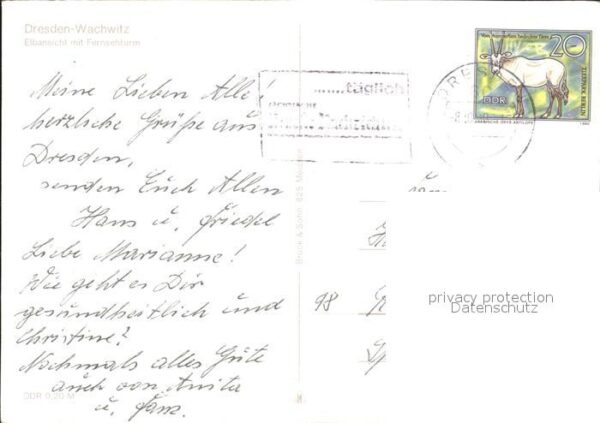 Dresden-Wachwitz
Elbansicht mit Fernsehturm
Meine Lieben Alle!
herzliche Grüße aus
Dresden,
senden Euch Allen
Hans u. Friedel
Liebe Marianne!
Wie geht es Dir
gesundheitlich und
Christine?
Nochmals alles Gute
auch von Anita
u. Fam.
DDR 0,20 M
......täglich
SÄCHSISCHE
Bruck & Sohn 825
20
DDR
TIERPARK BERLIN
ARABISCHE ORYX-ANTILOPE
98
privacy protection
Datenschutz